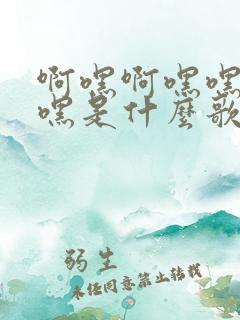 啊嘿啊嘿嘿
嘿是什麼歌
弱生
未经同意禁止转载